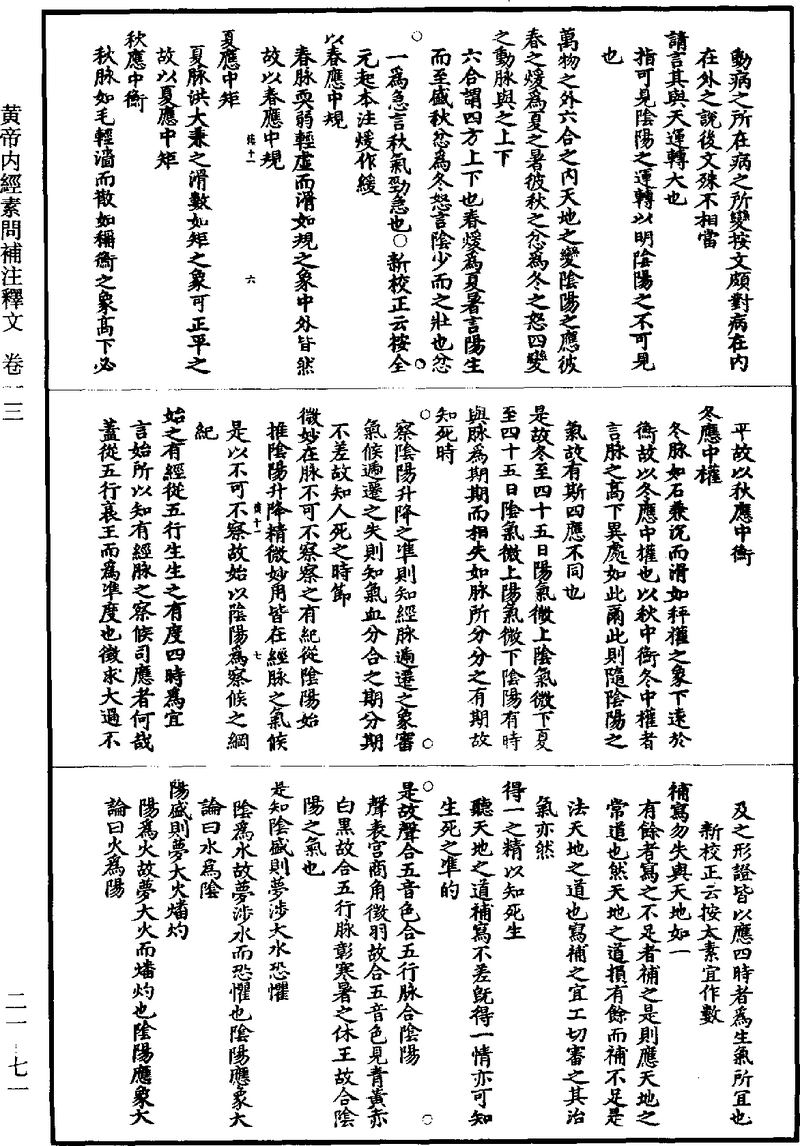 黄帝内經素問補注釋文 卷一三
二一·七一
動病之所在病之所變按文頗對病在内
在外之說後文殊不相當
請言其與天運轉大也
指可見陰陽之運轉以明陰陽之不可見
也
萬物之外六合之内天地之變陰陽之應彼
春之煖爲夏之暑彼秋之忿爲冬之怒四變
之動脉與之上下
六合謂四方上下也春煖爲夏暑言陽生
而至盛秋忿爲冬怒言陰少而之壯也忿
一爲急言秋氣勁急也○新校正云按全
元起本注煖作緩
以春應中規
春脉耎弱輕虛而滑如規之象中外皆然
故以春應中規
夏應中矩
夏脉洪大兼之滑數如矩之象可正平之
故以夏應中矩
秋應中衡
秋脉如毛輕濇而散如稱衡之象高下必
平故以秋應中衡
冬應中權
冬脉如石兼沉而滑如秤權之象下遠於
衡故以冬應中權也以秋中衡冬中權者
言脉之高下異處如此爾此則隨陰陽之
氣故有斯四應不同也
是故冬至四十五日陽氣微上陰氣微下夏
至四十五日陰氣微上陽氣微下陰陽有時
與脉爲期期而相失如脉所分分之有期故
知死時
察陰陽升降之準則知經脉遞遷之象審
氣候遞遷之失則知氣血分合之期分期
不差故知人死之時節
微妙在脉不可不察察之有紀從陰陽始
推陰陽升降精微妙用皆在經脉之氣候
是以不可不察故始以陰陽爲察候之綱
紀
始之有經從五行生生之有度四時爲宜
言始所以知有經脉之察候司應者何哉
蓋從五行衰王而爲準度也徵求大過不
及之形證皆以應四時者爲生氣所宜也
新校正云按太素宜作數
補寫勿失與天地如一
有餘者寫之不足者補之是則應天地之
常道也然天地之道損有餘而補不足是
法天地之道也寫補之宜工切審之其治
氣亦然
得一之精以知死生
聽天地之道補寫不差旣得一情亦可知
生死之準的
是故聲合五音色合五行脉合陰陽
聲表宫商角徵羽故合五音色見青黄赤
白黑故合五行脉彰寒暑之休王故合陰
陽之氣也
是知陰盛則夢涉大水恐懼
陰爲水故夢涉水而恐懼也陰陽應象大
論曰水爲陰
陽盛則夢大火燔灼
陽爲火故夢大火而燔灼也陰陽應象大
論曰火爲陽